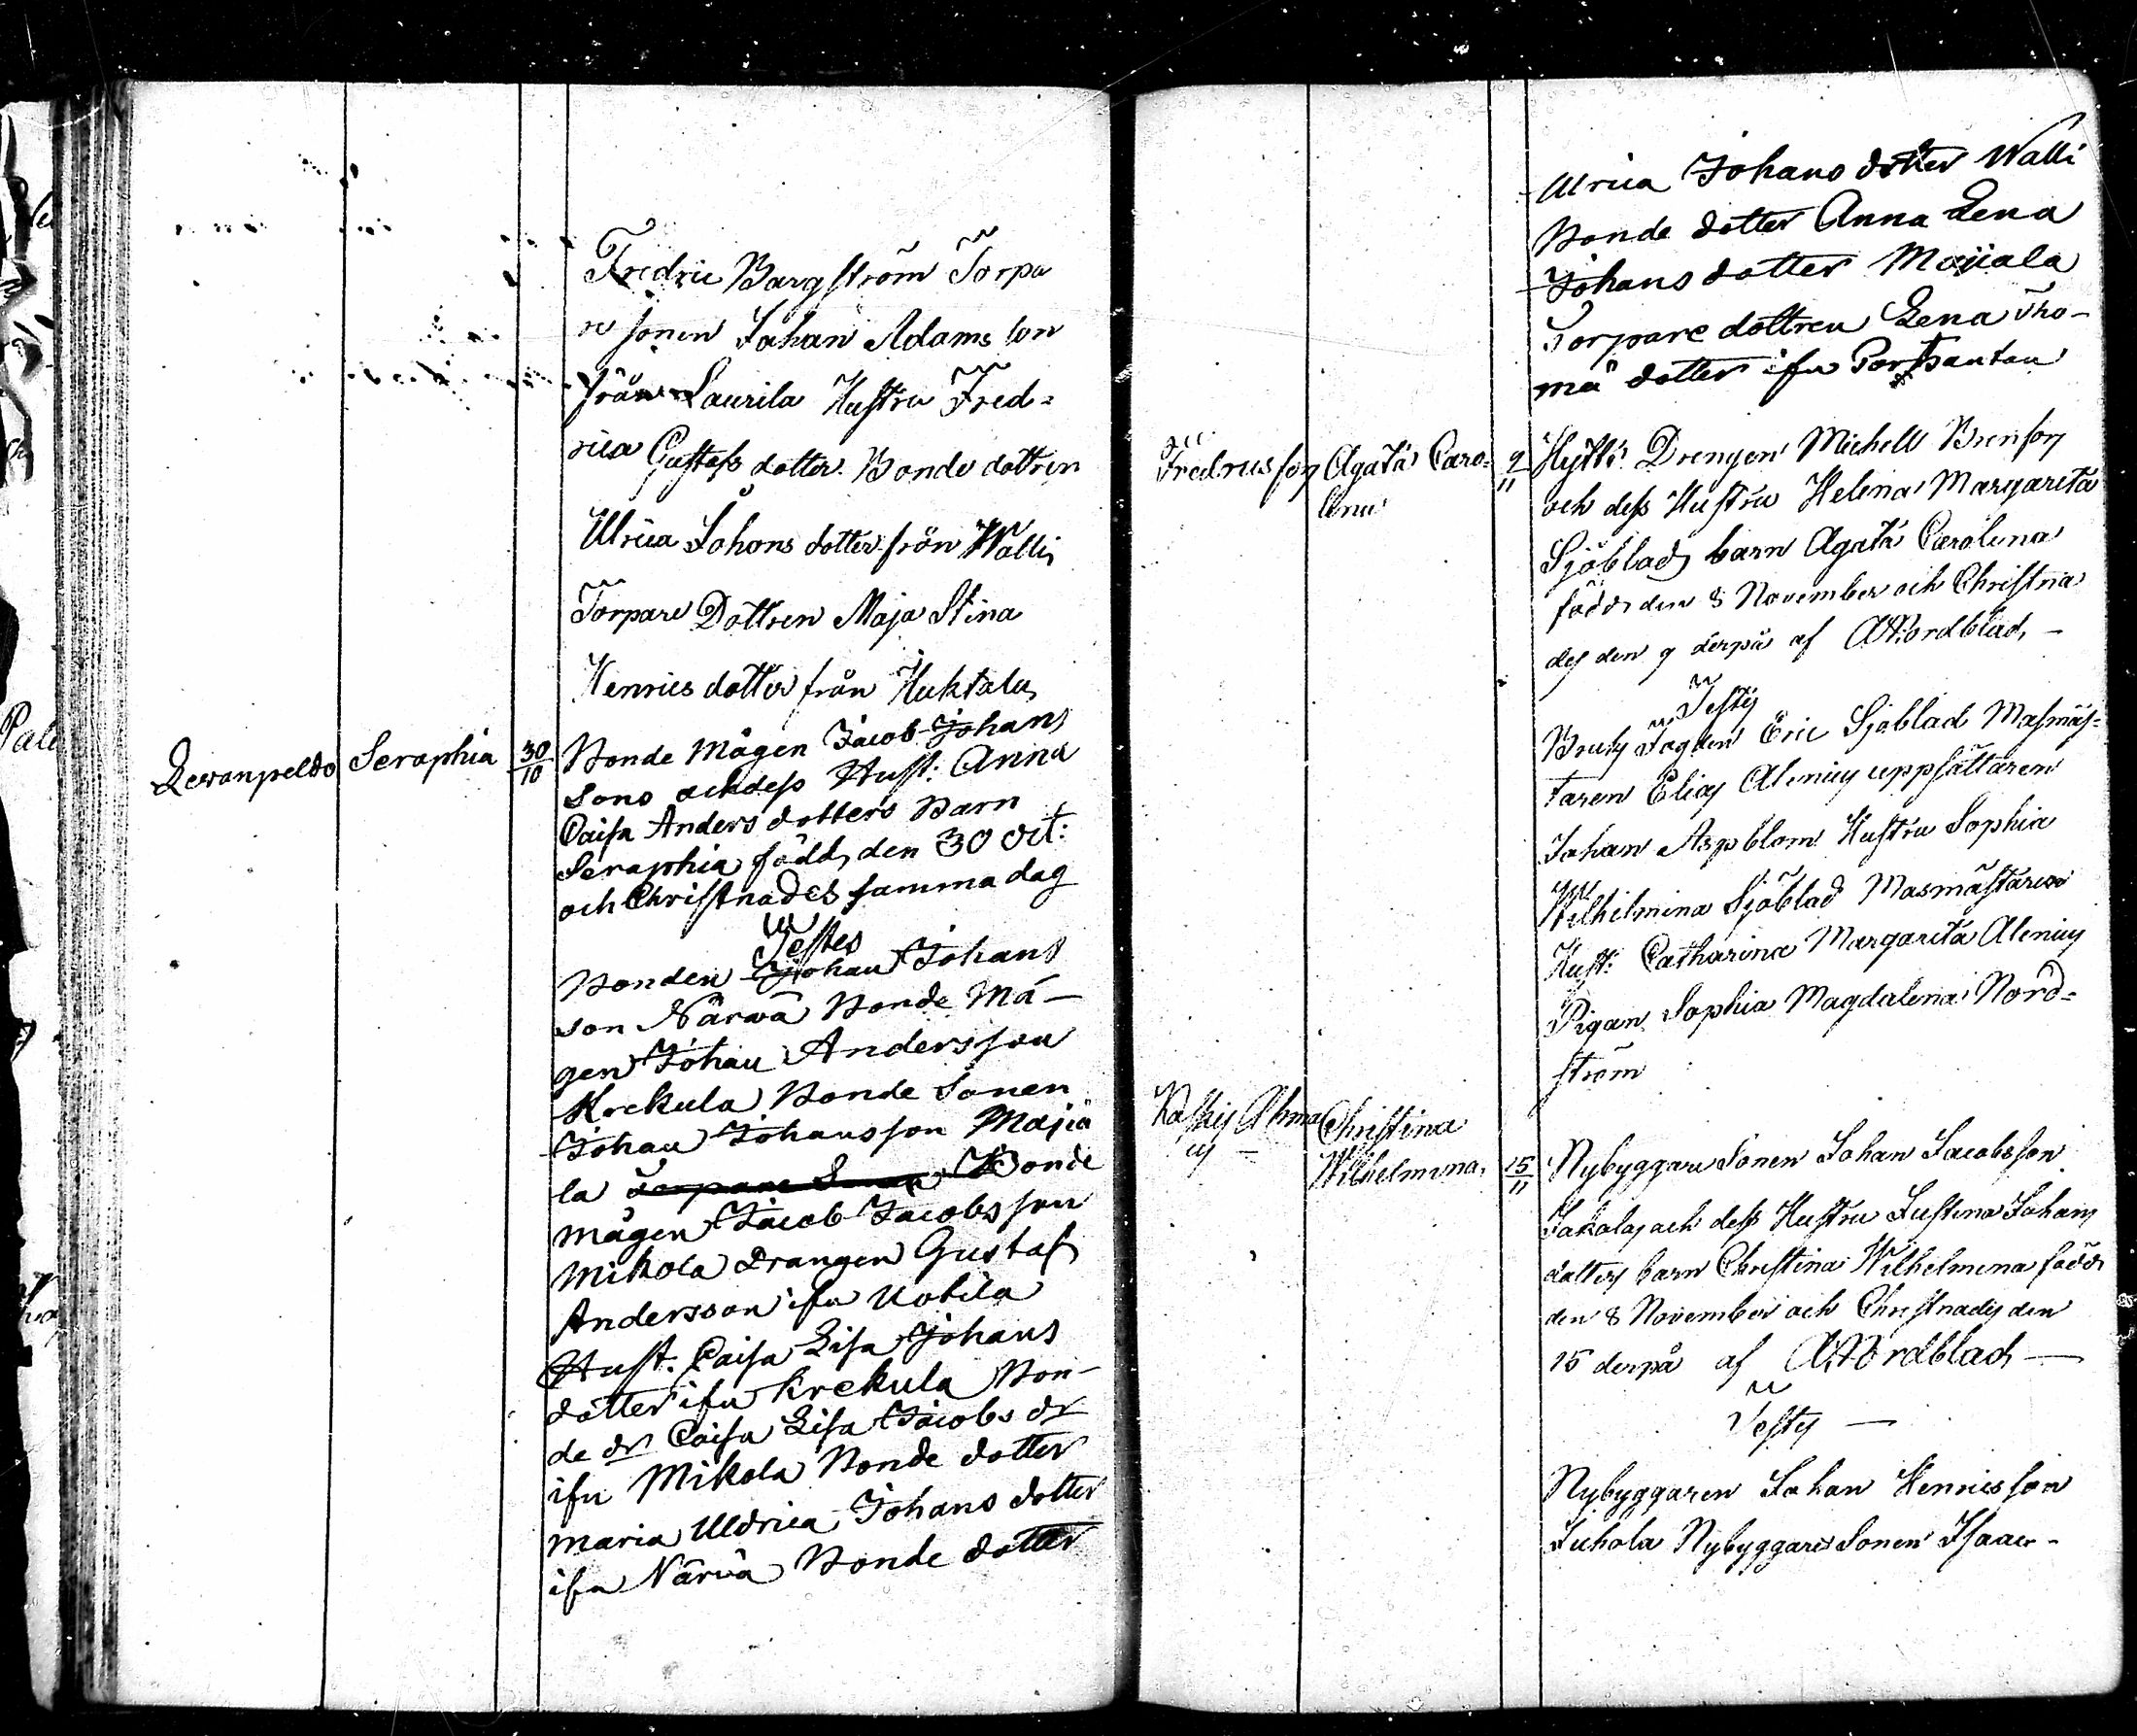 Fredric Bargström Torpa
re sonen Johan Adams son
från Laurila Hustru Fred-
rica Gustafs dotter. Bonde dottren
Ulrica Johans dotter från Walli
Torpare Dottren Maja Stina
Henrics dotter från Huktala
Lewanpeldo Seraphia 30/10 Bonde Mågen Jacob Johans
sons och dess Hust: Anna
Caisa Anders dotters Barn
Seraphia född den 30 Oct:
och Christnades samma dag
Testes
Bonden Johan Johans
son Närwä Bonde Må-
gen Johan Andersson
Krekula Bonde Sonen
Johan Johansson Majia
la Bonde
mågen Jacob Jacobsson
Mikola Drangen Gustaf
Andersson ifn Uotila
Hust. Caisa Lisa Johans
dotter ifn Krekula Bon-
de dr Caisa Lisa Jacobs dr
ifn Mikola Bonde dotter
Maria Uldrica Johans dotter
ifn Närwä Bonde dotter
Ulrica Johans dotter Walli
Bonde dotter Anna Lena
Johans dotter Majiala
Torpare dottren Lena Tho-
mä dotter ifn
Fredricsfors Agata Caro- 9/11 Hytte Drengen Michell
lina och dess Hustru Helena Margareta
Sjöblads barn Agata Carolina
född den 8 November och Christna
des den 9 derpå af A Nordblad, -
Testes
Eric Sjöblad Masmäs-
taren Elias Alenius uppsättaren
Johan Aspblom Hustru Sophia
Wilhelmina Sjöblad Masmästaren
Hust: Catharina Margareta Alenius
Pigan Sophia Magdalena Nord-
ström
Christina
Wilhelmina 15/11 Nybyggare Sonen Johan Jacobsson
och dess Hustru Justina Johans
dotters barn Christina Wilhelmina född
den 8 November och Christnades den
15 derpå af A Nordblad -
Testes -
Nybyggaren Johan Henricsson
Juhola Nybyggare Sonen Isaac-